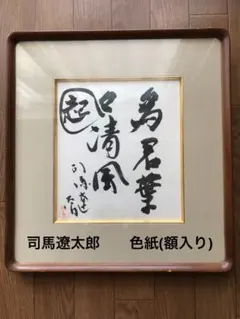 為君葉
々清風
起
司馬遼太郎
司馬遼太郎　　色紙(額入り)